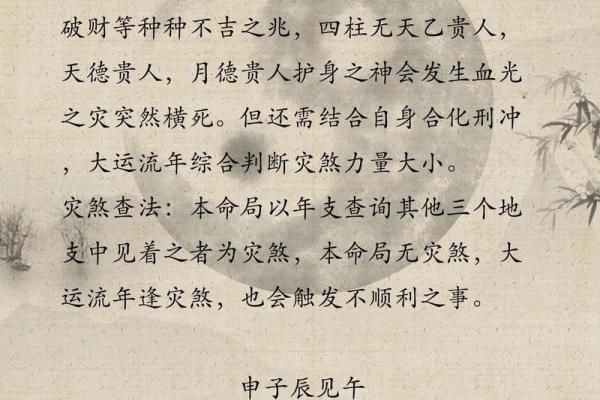 破财等种种不吉之兆，四柱无天乙贵人，
天德贵人，月德贵人护身之神会发生血光
之灾突然横死。但还需结合自身合化刑冲
，大运流年综合判断灾煞力量大小。
灾煞查法：本命局以年支查询其他三个地
支中见着之者为灾煞，本命局无灾煞，大
运流年逢灾煞，也会触发不顺利之事。
申子辰见午